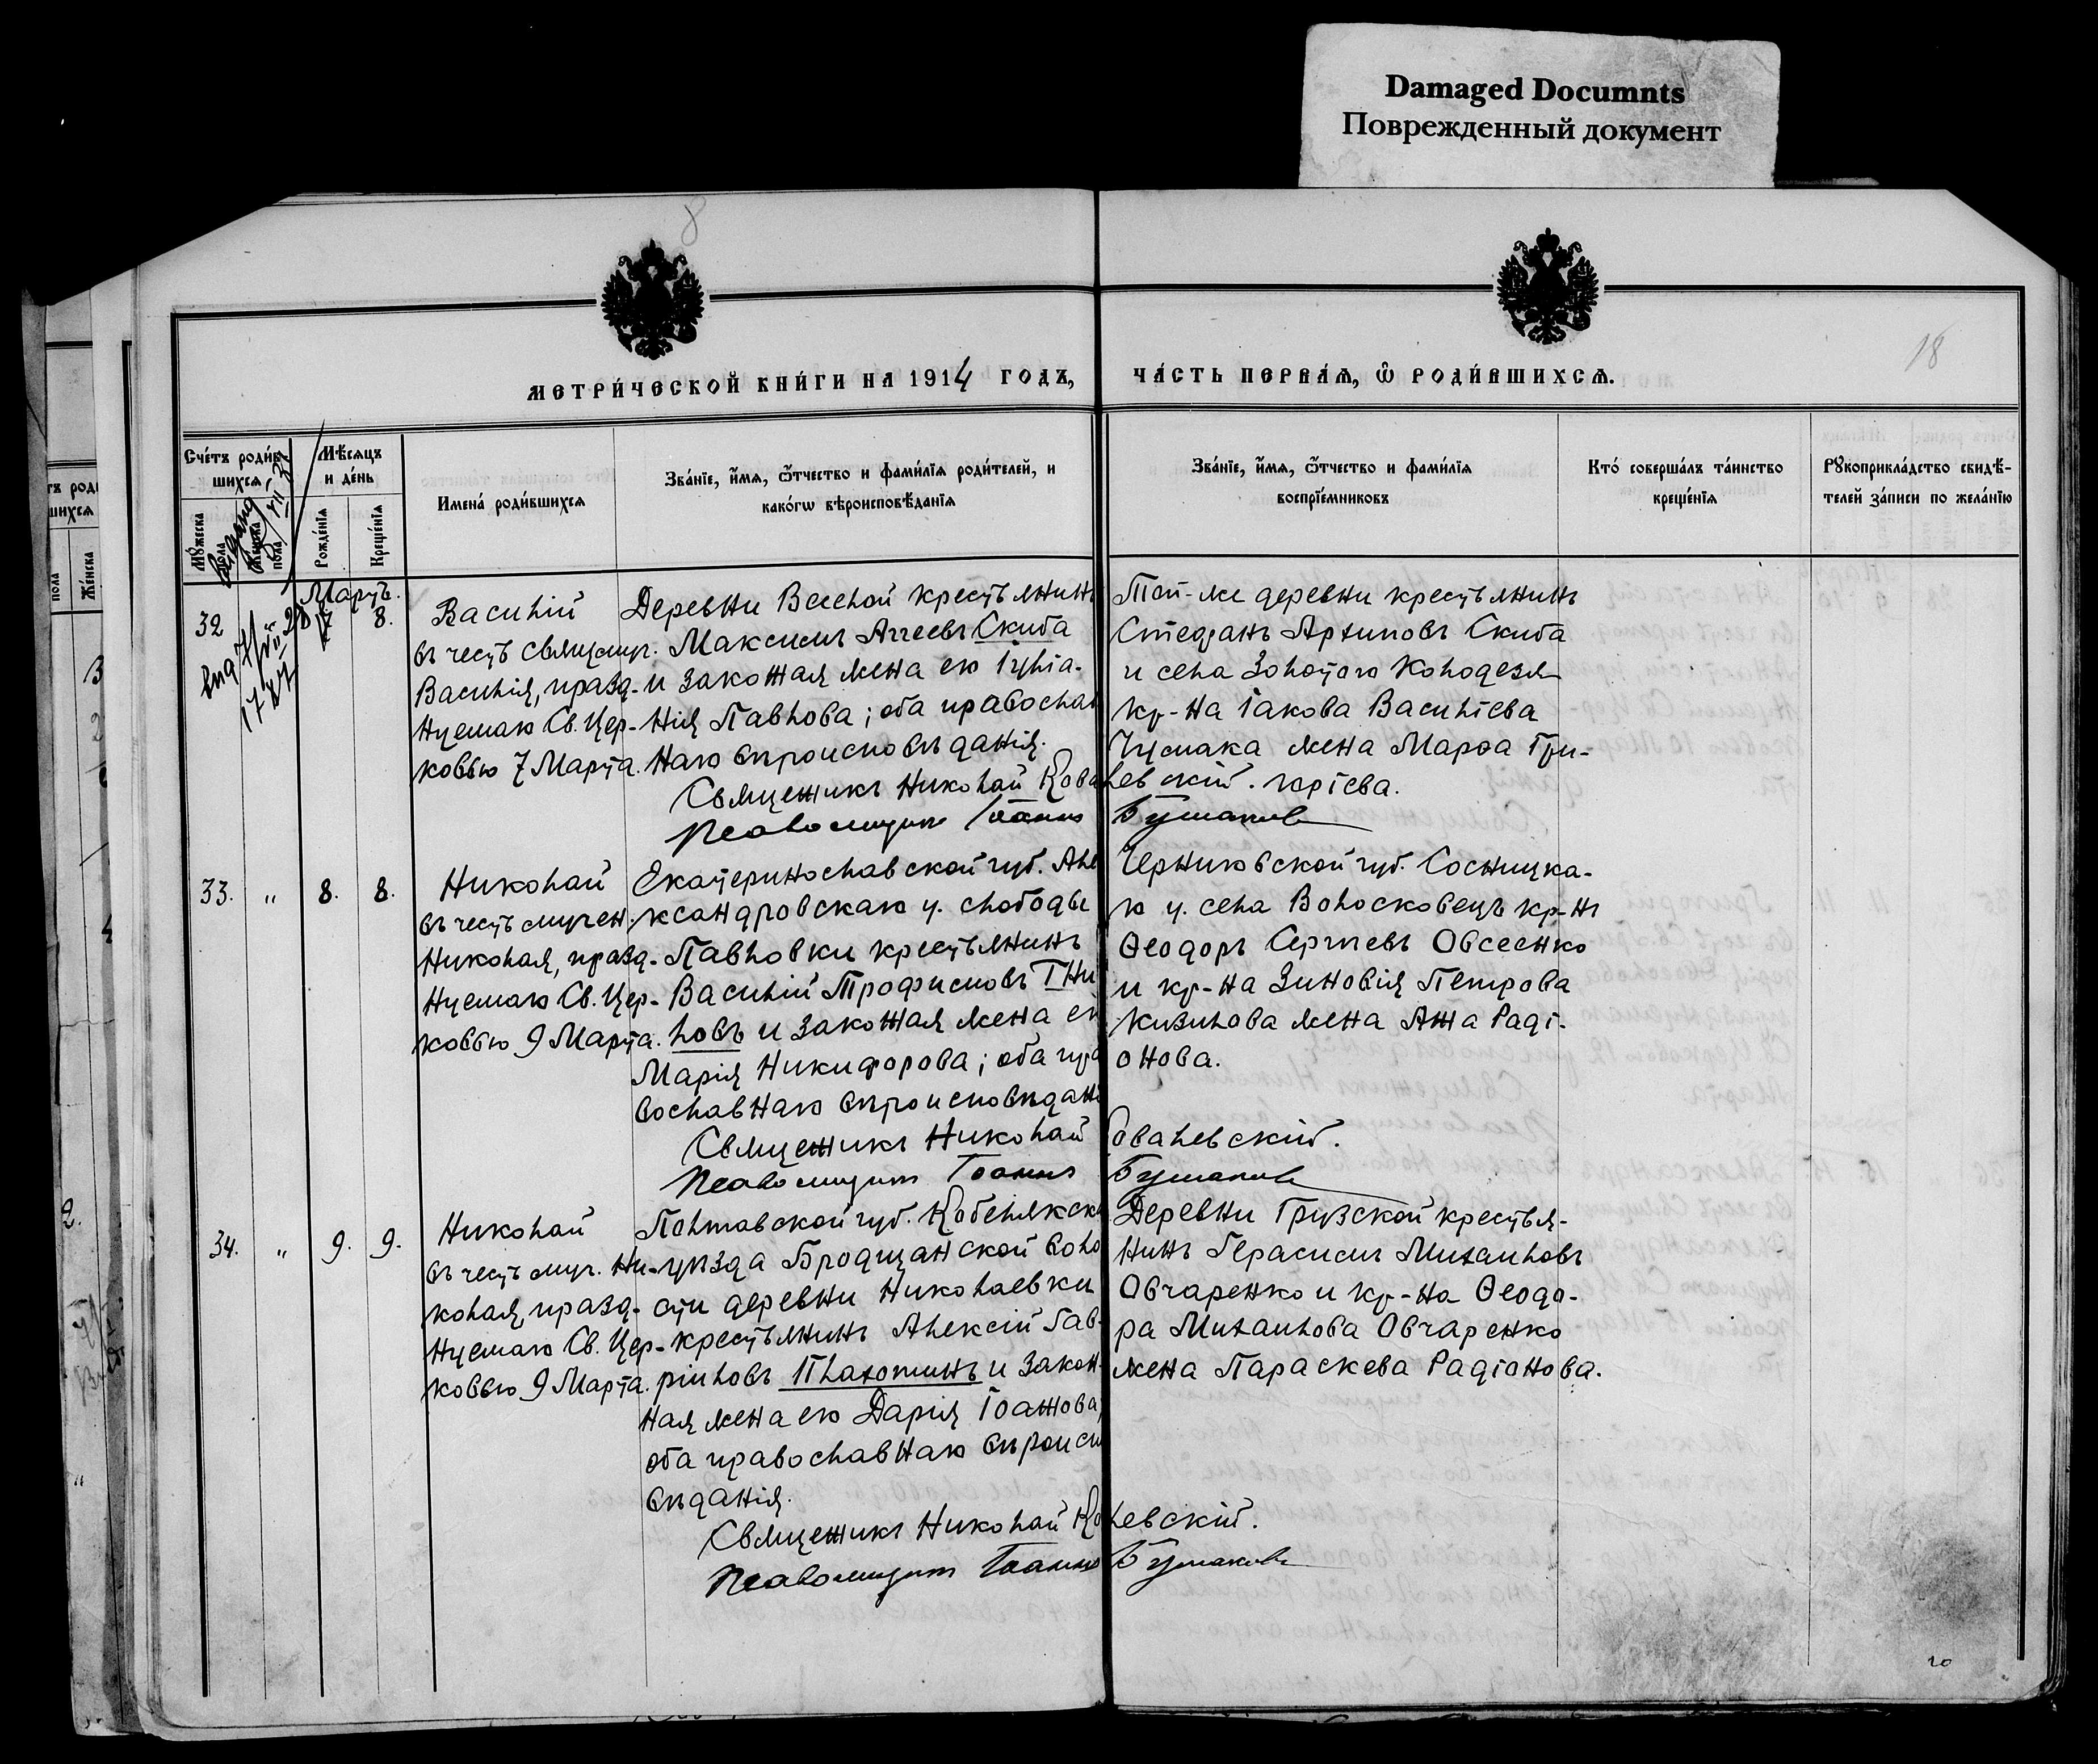 Damaged Documnts
Поврежденный документ
8
18
МЕТРИ́ЧЕСКОЙ КНИ́ГИ НА 1914 ГОДЪ,
ЧА́СТЬ ПЕРВА́Я, Ѽ РОДИ́ВШИХСЯ.
Сче́тъ роди́в-
шихся
Мѣ́сяцъ
и де́нь
Имена́ роди́вшихся
Зва́нїе, и́мя, ѻ́тчество и фами́лїя роди́телей, и
како́гѡ вѣроисповѣ́данїя
Зва́нїе, и́мя, ѻ́тчество и фами́лїя
воспрїе́мниковъ
Кто́ соверша́лъ та́инство
креще́нїя
Рꙋкоприкла́дство свидѣ́-
телей за́писи по жела́нїю
Мꙋ́жеска
пола
Же́нска
пола
Рожде́нїя
Креще́нїя
Мартъ.
32
7
8.
Василій
въ честь свящмуч.
Василія, празд-
нуемаго Св. Цер-
ковью 7 Марта.
Деревни Веселой крестьянинъ
Максимъ Аггеевъ Скиба
и законная жена его Іулiа-
нія Павлова; оба православ
наго вѣроисповѣданія.
Той-же деревни крестьянинъ
Стефанъ Архиповъ Скиба
и села Золотого Колодезя
кр-на Іакова Василіева
Чумака жена Марѳа Гри-
горіева.
Священникъ Николай Ковалевскій.
Псаломщикъ Іоаннъ Бушаковъ
33.
"
8.
8.
Николай
въ честь мучен.
Николая, празд-
нуемаго Св. Цер-
ковью 9 Марта.
Екатеринославской губ. Але
ксандровскаго у. слободы
Павловки крестьянинъ
Василій Трофимовъ Гни
ловъ и законная жена ег
Марія Никифорова; оба пра
вославнаго вѣроисповѣдані
Черниговской губ. Сосницка-
го у. села Волосковецъ кр-нъ
Ѳеодоръ Сергѣевъ Овсеенко
и кр-на Зиновія Петрова
Кизилова жена Анна Радi-
онова.
Священникъ Николай Ковалевскій.
Псаломщикъ Іоаннъ Бушаковъ
34.
"
9.
9.
Николай
въ честь муч. Ни-
колая, празд-
нуемаго Св. Цер-
ковью 9 Марта.
Полтавской губ. Кобелякска
уѣзда Бродщанской воло
сти деревни Николаевки
крестьянинъ Алексій Гав-
ріиловъ Плахотинъ и закон-
ная жена его Дарія Іоаннова;
оба православнаго вѣроиспо
вѣданія.
Деревни Грузской крестья-
нинъ Герасимъ Михаиловъ
Овчаренко и кр-на Ѳеодо-
ра Михаилова Овчаренко
жена Параскева Радіонова.
Священникъ Николай Ковалевскій.
Псаломщикъ Іоаннъ Бушаковъ